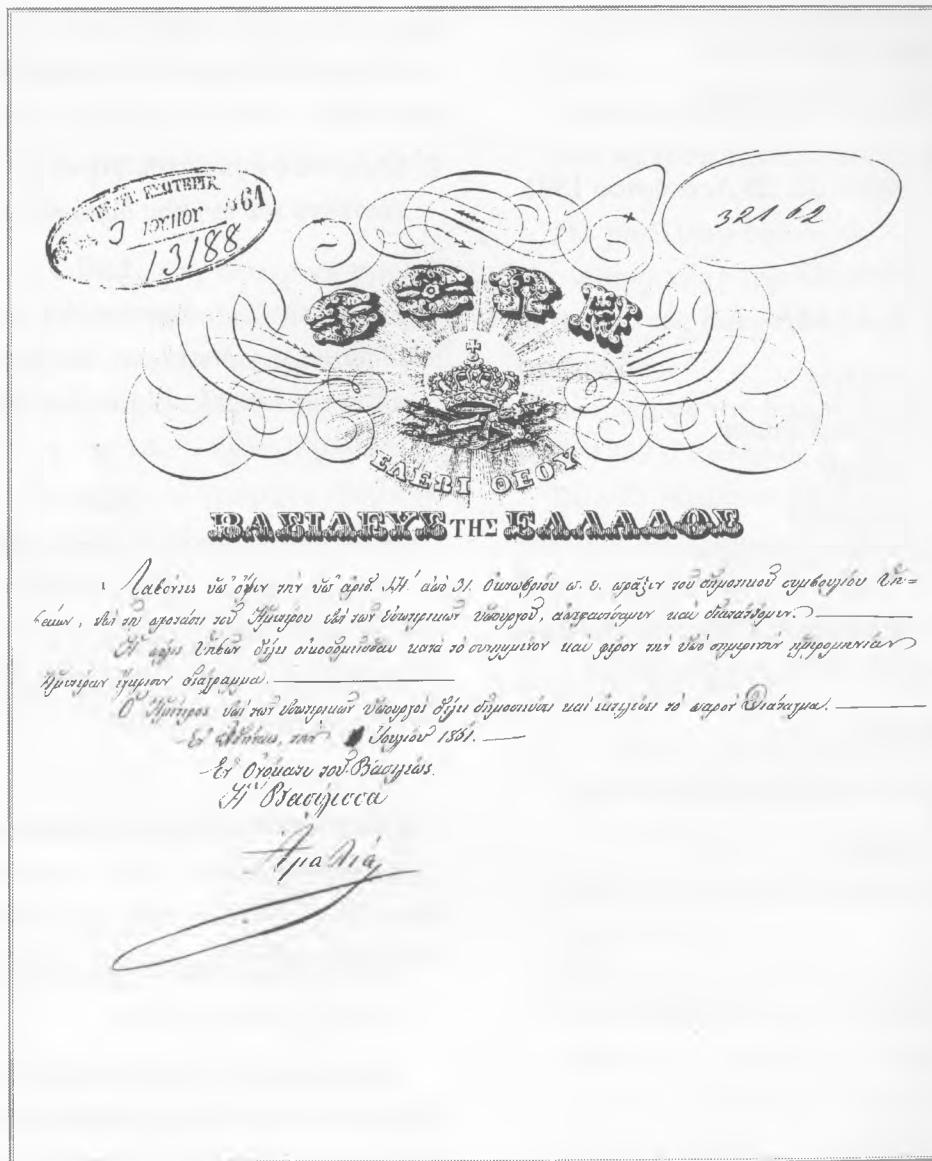 ΥΠΟΥΡ. ΕΣΩΤΕΡΙΚ.
3 ΙΟΥΝΙΟΥ 1861
13188
32162
ΟΘΩΝ
ΕΛΕΩι ΘΕΟΥ
ΒΑΣΙΛΕΥΣ ΤΗΣ ΕΛΛΑΔΟΣ
Λαβόντες ὑπ' ὄψιν τὴν ὑπ' ἀριθ. ἀπὸ 31. Ὀκτωβρίου π. ἔ. πρᾶξιν τοῦ δημοτικοῦ συμβουλίου
ἐπὶ τῇ προτάσει τοῦ Ἡμετέρου ἐπὶ τῶν Ἐσωτερικῶν Ὑπουργοῦ, ἀπεφασίσαμεν καὶ διατάττομεν.
Ἡ πόλις θέλει οἰκοδομεῖσθαι κατὰ τὸ συνημμένον καὶ φέρον τὴν ὑπὸ σημερινὴν ἡμερομηνίαν
Ἡμετέραν ἔγκρισιν διάγραμμα.
Ὁ Ἡμέτερος ἐπὶ τῶν Ἐσωτερικῶν Ὑπουργὸς θέλει δημοσιεύσει καὶ ἐκτελέσει τὸ παρὸν Διάταγμα.
Ἐν Ἀθήναις, τὴν 1861.
Ἐν Ὀνόματι τοῦ Βασιλέως.
Ἡ Βασίλισσα
Ἀμαλία